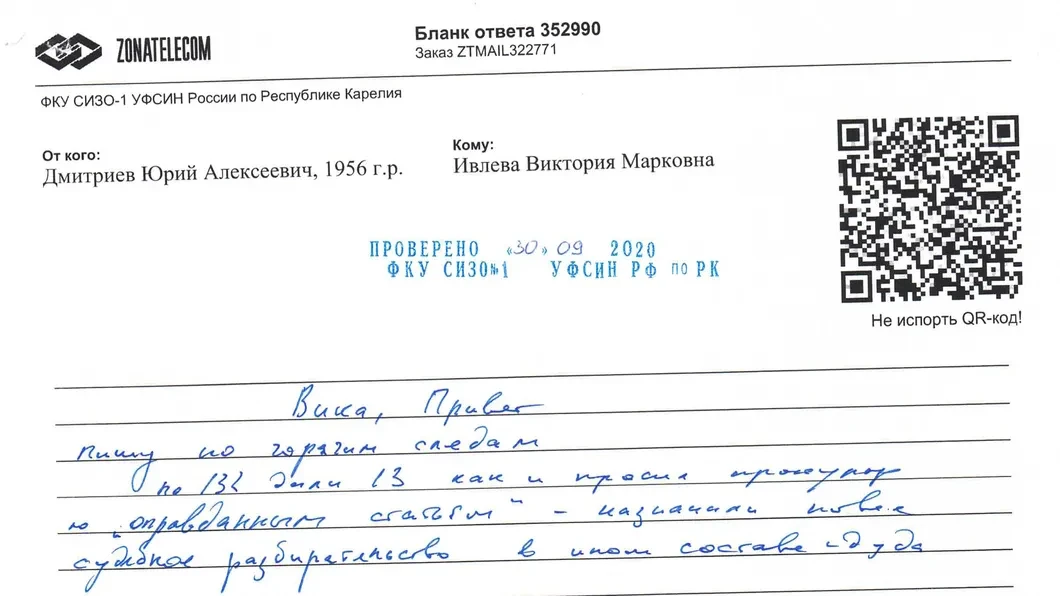 ZONATELECOM
Бланк ответа 352990
Заказ ZTMAIL322771
ФКУ СИЗО-1 УФСИН России по Республике Карелия
От кого:
Дмитриев Юрий Алексеевич, 1956 г.р.
Кому:
Ивлева Виктория Марковна
ПРОВЕРЕНО «30» 09 2020
ФКУ СИЗО№1 УФСИН РФ ПО РК
Не испорть QR-код!
Вика, Привет
пишу по горячим следам
по 132 дали 13 как и просил прокурор
по "оправданным статьям" - назначили новое
судебное разбирательство в ином составе суда